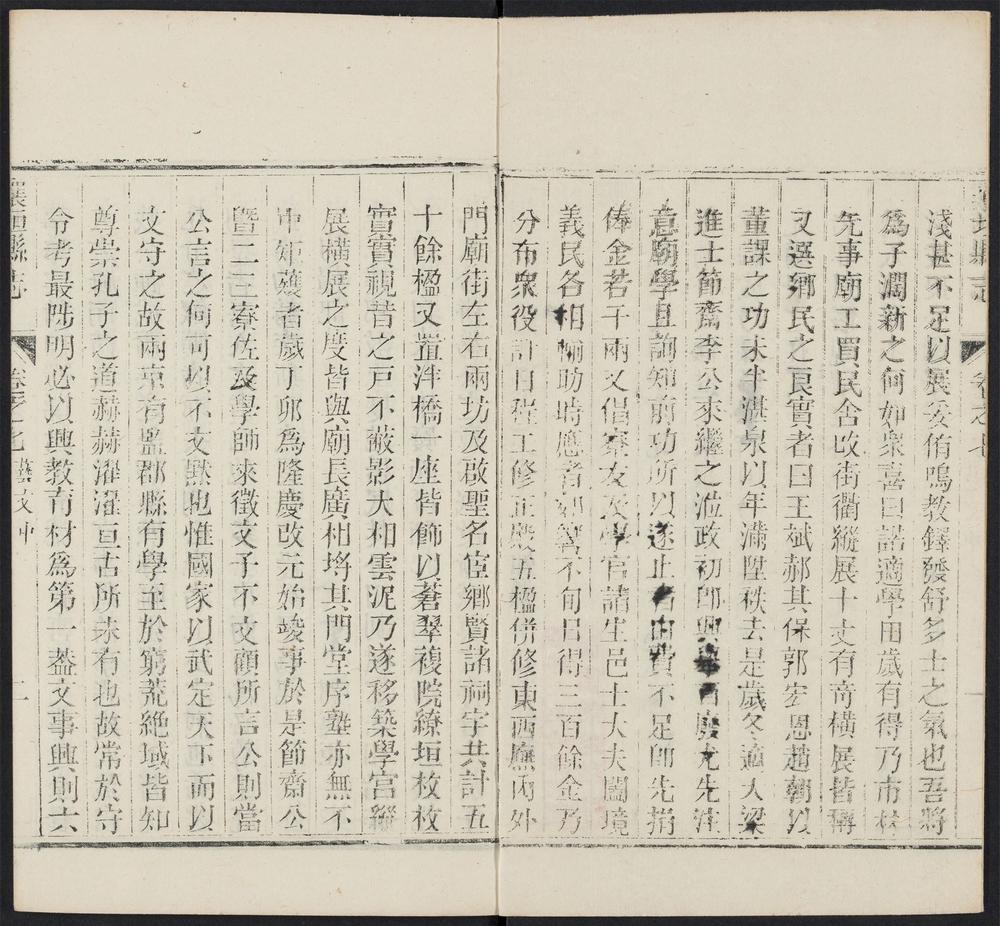 縣志
卷之七
淺甚不足以展妥侑鳴教鐸發舒多士之氣也吾將
為子濶新之何如衆喜曰諾適學用歲有得乃市材
先事廟工買民舍改街衢縱展十丈有奇橫展皆稱
又選鄉民之良實者曰王斌郝其保郭宏恩趙朝以
董課之功未半湛泉以年滿陞秩去是歲冬適大梁
進士節齋李公來繼之涖政初即興舉百廢尤先注
意廟學且詢知前功所以遂止者由費不足即先捐
俸金若干兩又倡寮友及學官諸生邑士大夫闔境
義民各相輸助時應者如響不旬日得三百餘金乃
分布衆役計日程工修正殿五楹併修東西廡內外
門廟街左右兩坊及啟聖名宦鄉賢諸祠宇共計五
十餘楹又置泮橋一座皆飾以蒼翠複院繚垣枚枚
實實視昔之戸不蔽影大相雲泥乃遂移築學宮縱
展橫展之度皆與廟長廣相埓其門堂序塾亦無不
中矩矱者歲丁卯為隆慶改元始竣事於是節齋公
曁二三寮佐及學師來徵文子不文顧所言公則當
公言之何可以不文黙也惟國家以武定天下而以
文守之故兩京有監郡縣有學至於窮荒絶域皆知
尊崇孔子之道赫赫濯濯亘古所未有也故常於守
令考最陟明必以興教育材為第一葢文事興則六
襄垣縣志
卷之七 藝文中
二